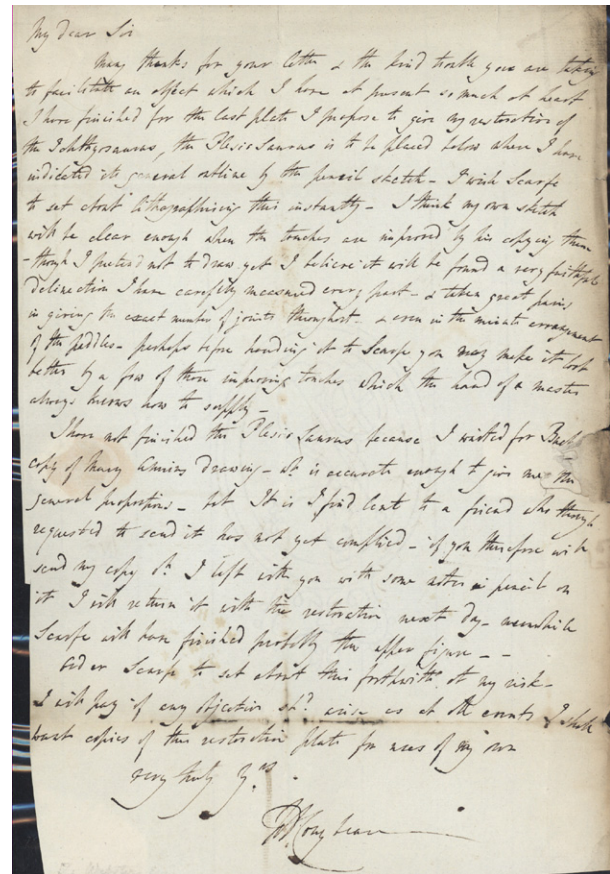 My dear Sir
Many thanks for your letter & the kind trouble you are taking
to facilitate an object which I have at present so much at heart
I have finished for the last plate I propose to give my restoration of
the Ichthyosaurus, the Plesiosaurus is to be placed below where I have
indicated its general outline by the pencil sketch - I wish Scarfe
to set about lithographising this instantly - I think my own sketch
will be clear enough when the touches are improved by his copying them
- though I pretend not to draw yet I believe it will be found a very faithful
delineation I have carefully measured every part - & taken great pains
in giving the exact number of joints throughout - & even in the minute arrangement
of the paddles - perhaps before handing it to Scarfe you may make it look
better by a few of those improving touches which the hand of a master
always knows how to supply -
I have not finished the Plesiosaurus because I waited for
copy of Mary Annings drawing - it is accurate enough to give me the
general proportions - but It is I find lent to a friend who though
requested to send it has not yet complied - if you therefore will
send my copy I left with you with some notes in pencil on
it I will return it with the restoration next day - meanwhile
Scarfe will have finished probably the upper figure - -
order Scarfe to set about this forthwith at my risk -
I will pay if any objection shd. arise as at all events I shall
want copies of this restoration plate for uses of my own
very truly Yrs.
Conybeare